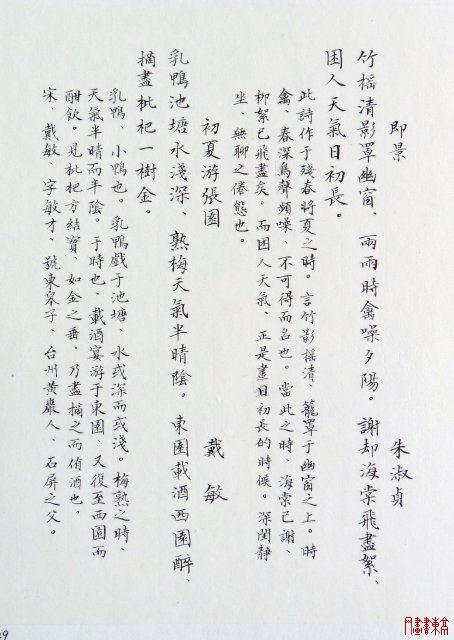 即景　朱淑貞
竹搖清影罩幽窗、兩兩時禽噪夕陽。謝却海棠飛盡絮、
困人天氣日初長。
此詩作于殘春將夏之時。言竹影搖清、籠罩于幽窗之上。時
禽、春深鳥聲頻噪、不可得而名也。當此之時、海棠已謝、
柳絮已飛盡矣。而困人天氣、正是晝日初長的時候。深閨靜
坐、無聊之倦態也。
初夏游張園　戴敏
乳鴨池塘水淺深、熟梅天氣半晴陰。東園載酒西園醉、
摘盡枇杷一樹金。
乳鴨、小鴨也。乳鴨戲于池塘、水或深而或淺。梅熟之時、
天氣半晴而半陰。于時也、載酒宴游于東園、又復至西園而
酣飲。見枇杷方結實、如金之垂、乃盡摘之而侑酒也。
宋、戴敏、字敏才、號東皋子、台州黃巖人、石屏之父。
29